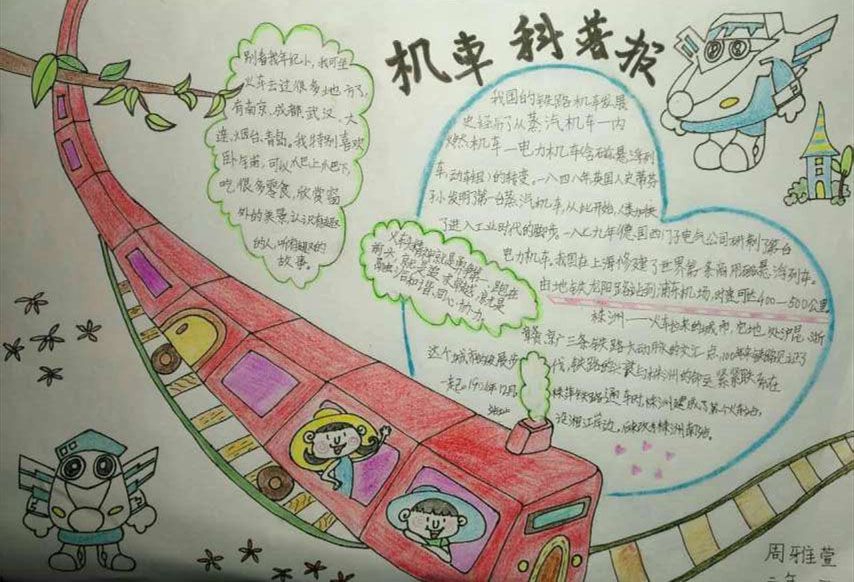 机車科普报
别看我年纪小，我可坐
火车去过很多地方了，
有南京、成都、武汉、大
连、烟台、青岛。我特别喜欢
卧车箱，可以爬上爬下，
吃很多零食，欣赏窗
外的美景，认识有趣
的人，听有趣的
故事。
火车精神就是
前头，就是追求
后和谐、同心协力。
我国的铁路机车发展
史经历了从蒸汽机车一内
燃机车一电力机车(含磁悬浮列
车、动车组)的转变。一八一四年英国人史蒂芬
孙发明了第一台蒸汽机车，从此开始，人类加快
了进入工业时代的脚步。一八七九年德国西门子电气公司研制了第一台
电力机车。我国在上海修建了世界第一条商用磁悬浮列车。
由地铁龙阳路站到浦东机场，时速可达400—500公里
株洲——火车拉来的城市，它地处沪昆、浙
赣、京广三条铁路大动脉的交汇点，100年来铁路见证了
这个城市的发展步伐，铁路的兴衰与株洲的命运紧紧联系在
一起。
株萍铁路通车时，株洲建成了第一个火车站，
设湘江岸边，后改名株洲南站。
周雅萱